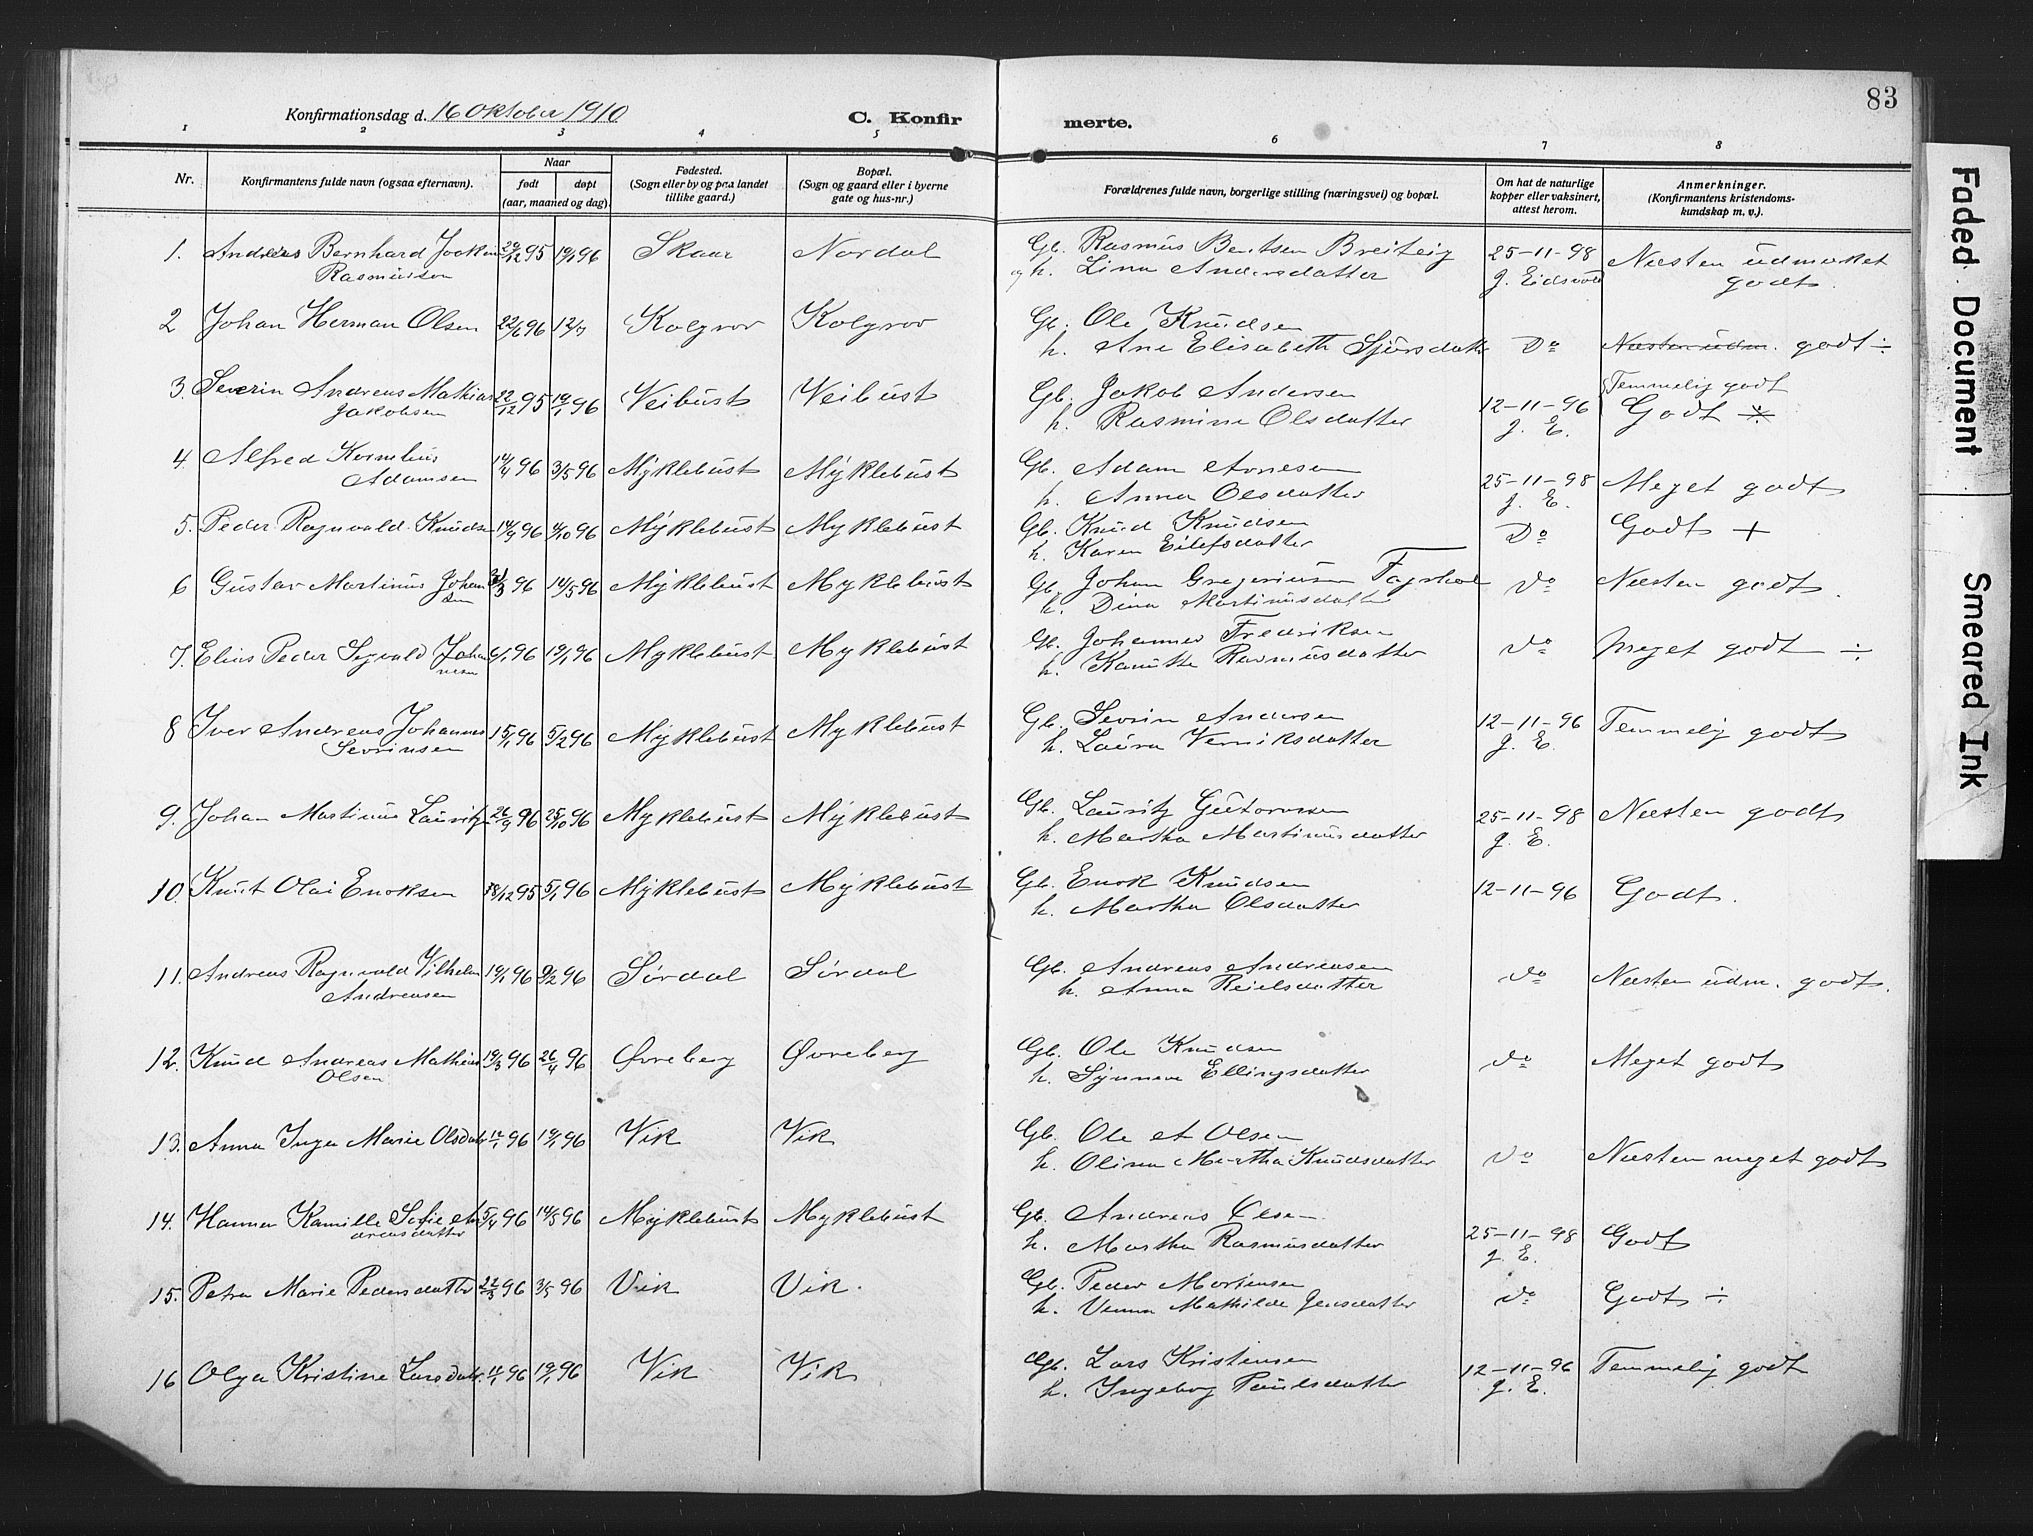 83
Konfirmationsdag d. 16 Oktober 1910
C. Konfir merte.
1 2 3 4 5 6 7 8
Nr.
Konfirmantens fulde navn (ogsaa efternavn).
Naar
født døpt
(aar, maaned og dag).
Fødested.
(Sogn eller by og paa landet
tillike gaard.)
Bopæl.
(Sogn og gaard eller i byerne
gate og hus-nr.)
Forældrenes fulde navn, borgerlige stilling (næringsvei) og bopæl.
Om hat de naturlige
kopper eller vaksinert,
attest herom.
Anmerkninger.
(Konfirmantens kristendoms-
kundskap m. v.).
1. Andreas Bernhard Joakim 29/12 95 19/1 96 Skaar Nordal Gb. Rasmus Bentsen Breiteig 25-11-98 Næsten udmerket
Rasmussen og h. Lina Andersdatter J. Eidsvold godt.
2 Johan Herman Olsen 22/6 96 12/7 Kolgrov Kolgrov Gb. Ole Knudsen
h. Ane Elisabeth Sjursdatter Do Næsten udm. godt ÷
3. Severin Andreas Mathias 22/12 95 19/1 96 Veibust Veibust Gb. Jakob Andersen 12-11-96 Temmelig godt
Jakobsen h. Rasmine Olsdatter J. E. Godt ÷
4. Alfred Kornelius 14/4 96 3/5 96 Myklebust Myklebust Gb. Adam Arnesen 25-11-98 Meget godt
Adamsen h. Anna Olsdatter J. E.
5. Peder Ragnvald Knudsen 14/9 96 4/10 96 Myklebust Myklebust Gb. Knud Knudsen Do Godt +
h. Karen Eilefsdatter
6 Gustav Martinus Johan 96 14/5 96 Myklebust Myklebust Gb. Johan Gregoriusen Do Næsten godt.
sen h. Dina Martinusdatter
7. Elias Peder Sigvald Johan 6/1 96 19/1 96 Myklebust Myklebust Gb. Johannes Fredriksen Do Meget godt ÷
nesen h. Kanutte Rasmusdatter
8 Iver Andreas Johannes 15/1 96 5/2 96 Myklebust Myklebust Gb. Sevrin Andersen 12-11-96 Temmelig godt
Sevrinsen h. Laura Verniksdatter J. E.
9. Johan Martinus Lauritz 26/9 96 25/10 96 Myklebust Myklebust Gb. Lauritz Gutormsen 25-11-98 Næsten godt
h. Martha Martinusdatter J. E.
10. Knut Olai Enoksen 18/12 95 5/1 96 Myklebust Myklebust Gb. Enok Knudsen 12-11-96 Godt.
h. Martha Olsdatter
11. Andreas Ragnvald Vilhelm 19/1 96 9/2 96 Sørdal Sørdal Gb. Andreas Andreasen Do Næsten udm. godt.
Andreasen h. Anna Reielsdatter
12. Knud Andreas Mathias 19/3 96 26/4 96 Øvreberg Øvreberg Gb. Ole Knudsen Do Meget godt
Olsen h. Synneve Ellingsdatter
13. Anna Inga Marie Olsdatr 96 19/1 96 Vik Vik Gb. Ole Olsen Do Næsten meget godt
h. Olina Martha Knudsdatter
14. Hanna Kamille Sofie An 5/4 96 14/5 96 Myklebust Myklebust Gb. Andreas Olsen 25-11-98 Godt
dreasdatter h. Martha Rasmusdatter J. E.
15. Petra Marie Pedersdatter 22/3 96 3/5 96 Vik Vik. Gb. Peder Mortensen Do Godt ÷
h. Mathilde Jensdatter
16 Olga Kristine Larsdatr. 96 19/1 96 Vik Vik Gb. Lars Kristensen 12-11-96 Temmelig godt
h. Ingeborg Paulsdatter J. E.
Faded Document
Smeared Ink